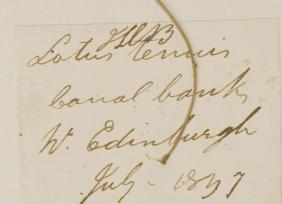 Lotus tenuis
Canal bank
W. Edinburgh
July - 1897